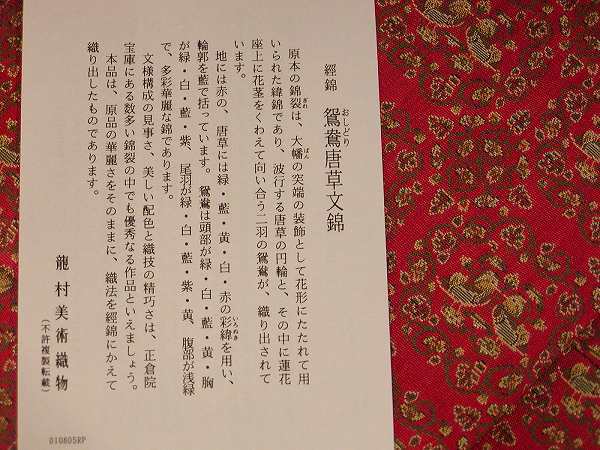 經錦　鴛鴦唐草文錦
おしどり
原本の錦裂は、大幡の突端の装飾として花形にたたれて用
ぎれ
ばん
いられた緯錦であり、波行する唐草の円輪と、その中に蓮花
座上に花茎をくわえて向い合う二羽の鴛鴦が、織り出されて
います。
地には赤の、唐草には緑・藍・黄・白・赤の彩緯を用い、
いろぬき
輪郭を藍で括っています。鴛鴦は頭部が緑・白・藍・黄・胸
が緑・白・藍・紫、尾羽が緑・白・藍・紫・黄、腹部が浅緑
で、多彩華麗な錦であります。
文様構成の見事さ、美しい配色と織技の精巧さは、正倉院
宝庫にある数多い錦裂の中でも優秀なる作品といえましょう。
本品は、原品の華麗さをそのままに、織法を經錦にかえて
織り出したものであります。
龍村美術織物
（不許複製転載）
010605RP